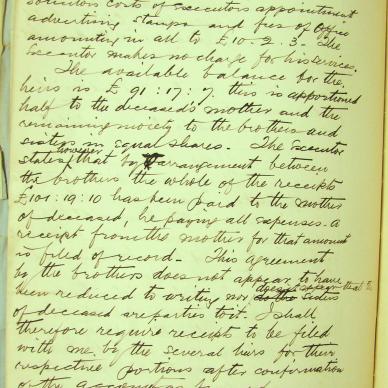 solicitors costs of executors appointment
advertising stamps and fees of Office
amounting in all to £10-2-3. The
Executor makes no charge for his services.
The available balance for the
heirs is £91:17:7. this is apportioned
half to the deceased's mother and the
remaining moiety to the brothers and
sisters in equal shares. The Executor
states however that by arrangement between
the brothers the whole of the receipts
£101:19:10 has been paid to the mother
of deceased, he paying all expenses. a
receipt from the mother for that amount
is filed of record. This agreement
by the brothers does not appear to have
been reduced to writing nor does it appear that the sisters
of deceased are parties to it. I shall
therefore require receipt to be filed
with me by the several heirs for their
respective portions after confirmation
of the